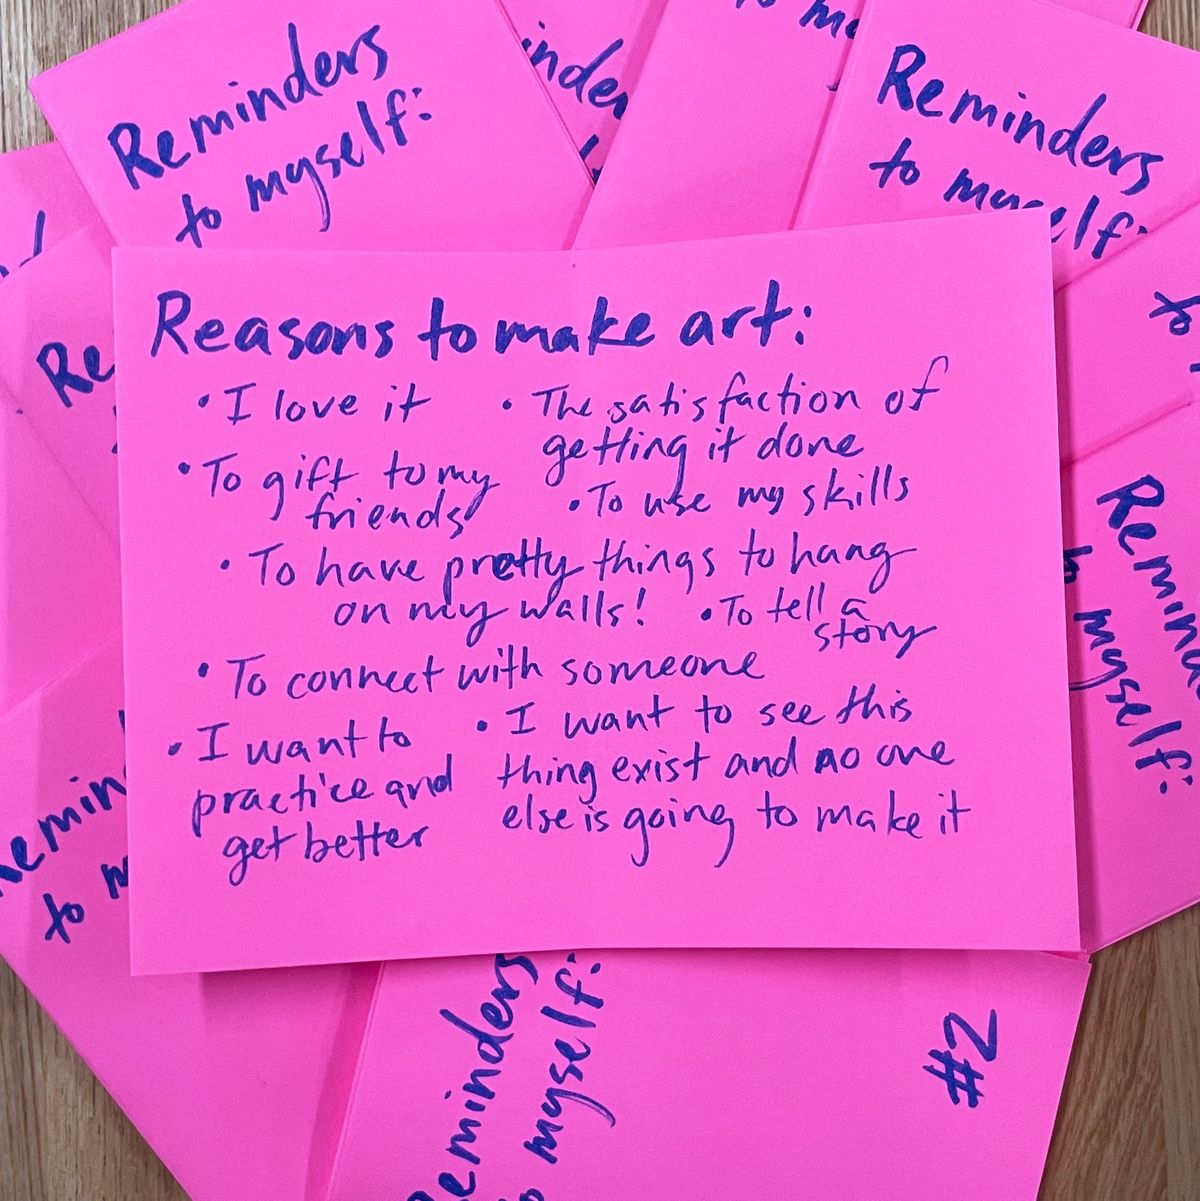 Reminders
to myself:
inder
to my
Reminders
to myself:
Re
to
Reasons to make art:
• I love it
• The satisfaction of
getting it done
• To gift to my
friends
• To use my skills
• To have pretty things to hang
on my walls!
• To tell a
story
• To connect with someone
• I want to
practice and
get better
• I want to see this
thing exist and no one
else is going to make it
Remind
to myself:
Remin
to m
Reminders
to myself:
#2